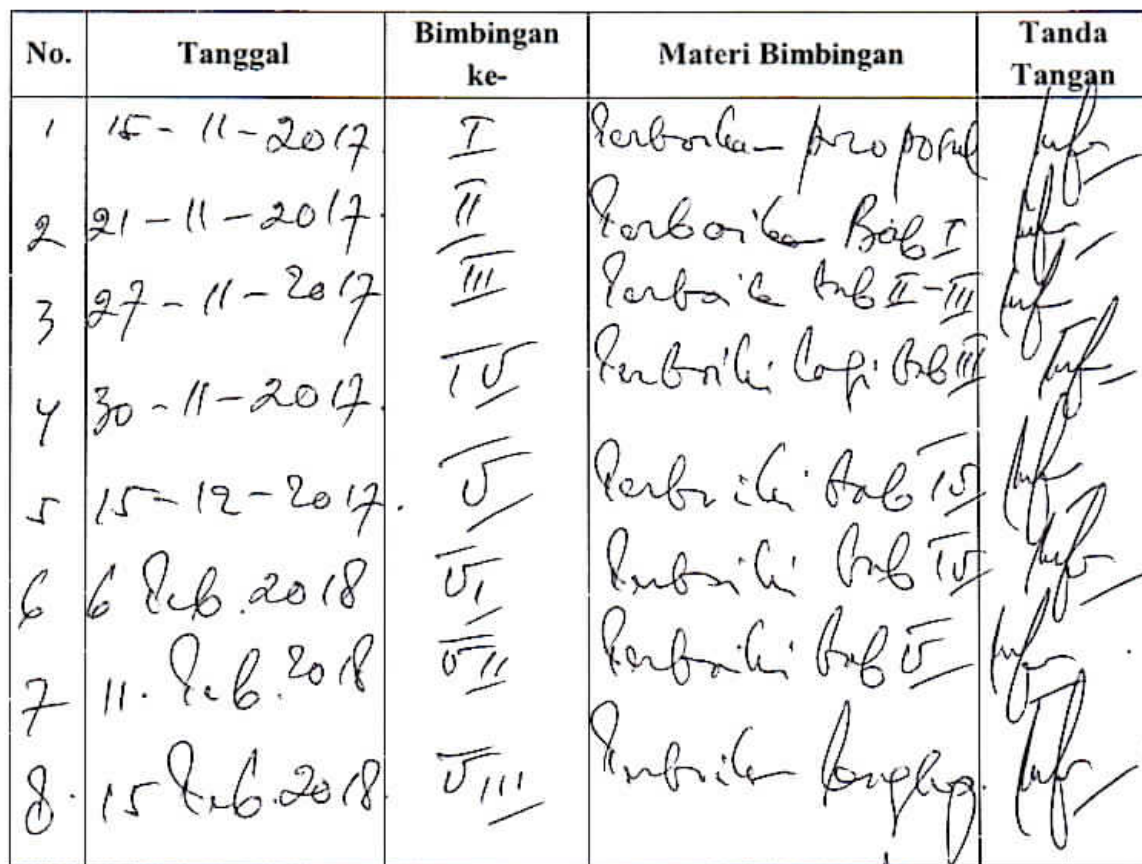 No. Tanggal Bimbingan ke- Materi Bimbingan Tanda Tangan
1 15-11-2017 I Perbaikan proposal
2 21-11-2017. II Perbaikan Bab I
3 27-11-2017 III Perbaiki bab II-III
4 30-11-2017. IV Perbaiki lagi bab III
5 15-12-2017. V Perbaiki bab IV
6 6 Feb. 2018 VI Perbaiki bab IV
7 11. Feb. 2018 VII Perbaiki bab V
8. 15 Feb. 2018 VIII Perbaikan